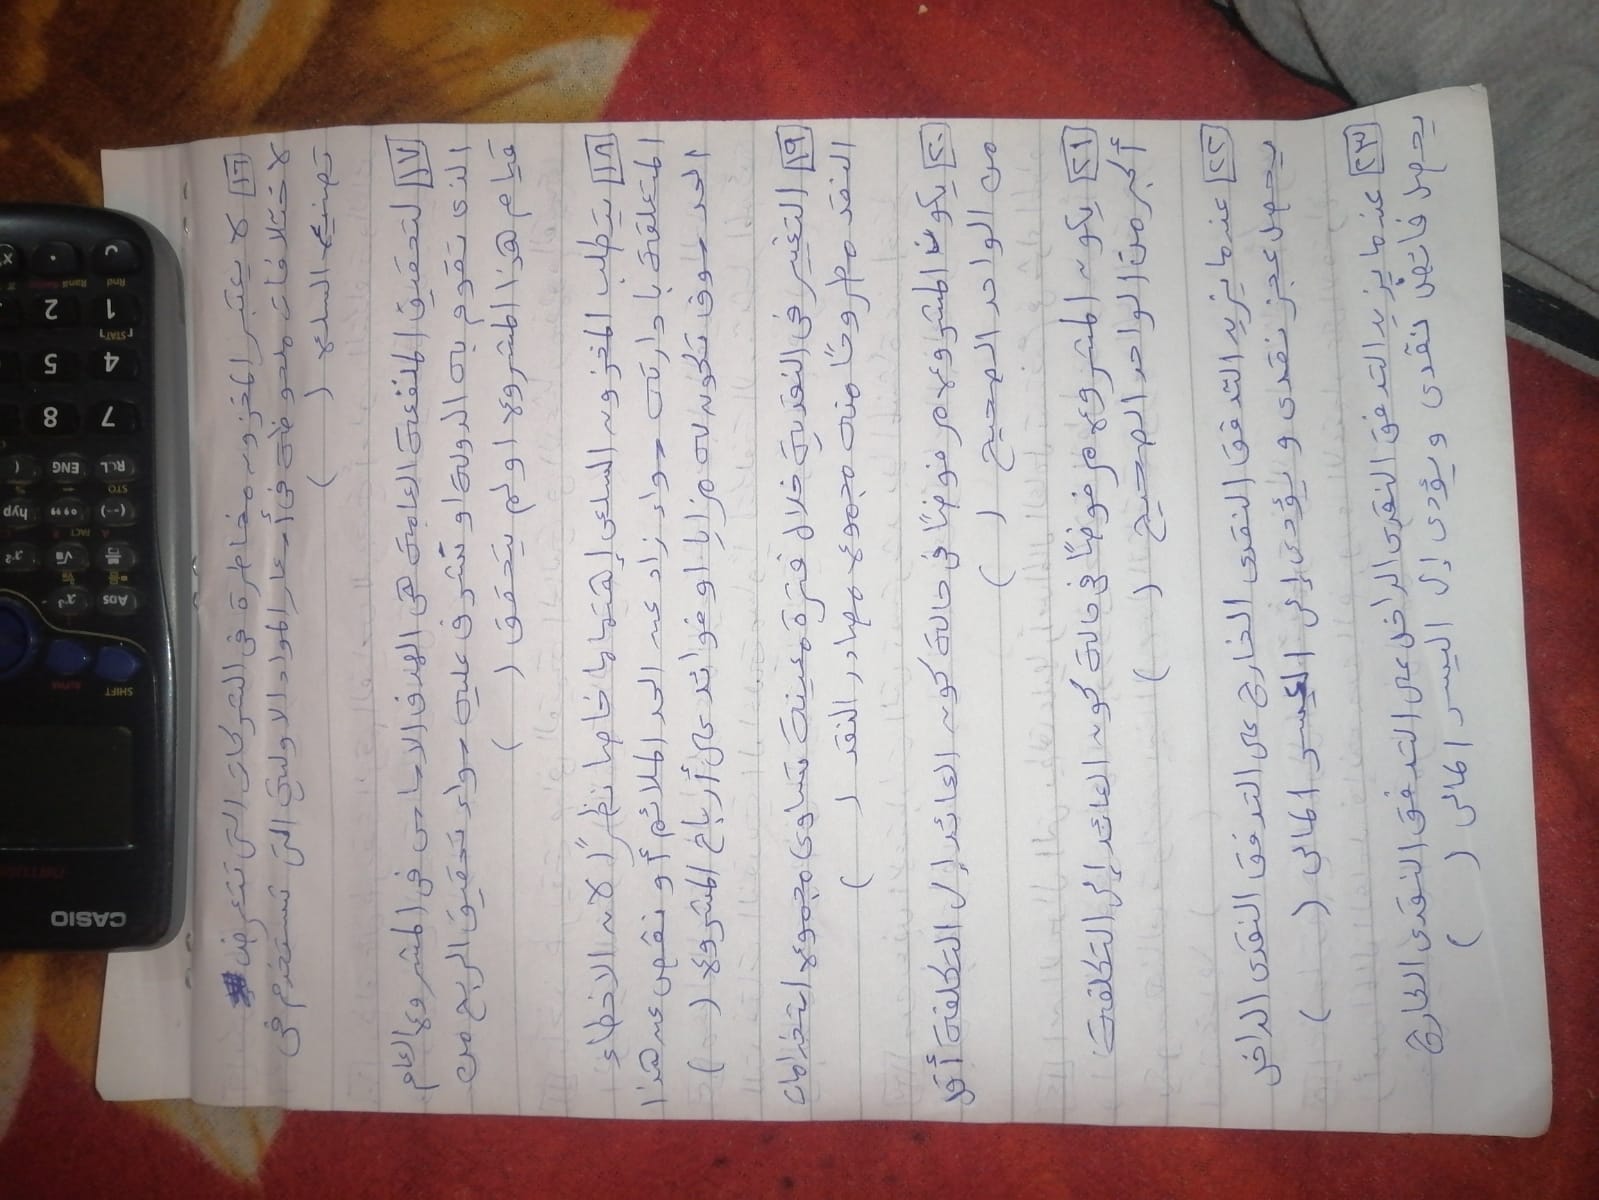 ١٦ لا يعتبر المخزون مخاطرة فى الشركات التى تتعرض
لاختلافات ملحوظة فى أسعار المواد الاولية التى تستخدم فى
تصنيع السلع ( )
١٧ لتحقيق المنفعة العامة هى الهدف الاساسى فى المشروع العام
الذى تقوم به الدولة او تشرف عليه سواء تحقيق الربح من
قيام هذا المشروع او لم يتحقق ( )
١٨ يتطلب المخزون السلعى إهتماما خاصا نظراً لان الاخطاء
المتعلقة بادارته سواء زاد عن الحد الملائم أو نقص عن هذا
الحد سوف تكون له مزايا او فوائد على أرباح المشروع ( )
١٩ التغير فى النقدية خلال فترة معينة تساوى مجموع استخدامات
النقد مطروحًا منه مجموع مصادر النقد ( )
٢٠ يكون المشروع مرفوضًا فى حالة كون العائد إلى التكلفة أقل
من الواحد الصحيح ( )
٢١ يكون المشروع مرفوضًا فى حالة كون العائد إلى التكلفة
أكبر من الواحد الصحيح ( )
٢٢ عندما يزيد التدفق النقدى الخارج على التدفق النقدى الداخل
يحصل عجز نقدى و يؤدى إلى العسر المالى ( )
٢٣ عندما يزيد التدفق النقدى الداخل على التدفق النقدى الخارج
يحصل فائض نقدى و يؤدى إلى اليسر المالى ( )
CASIO
SHIFT
ALPHA
Ans
hyp
RCL
ENG
STO
7
8
4
5
1
2
STAT
Rnd
Ran#